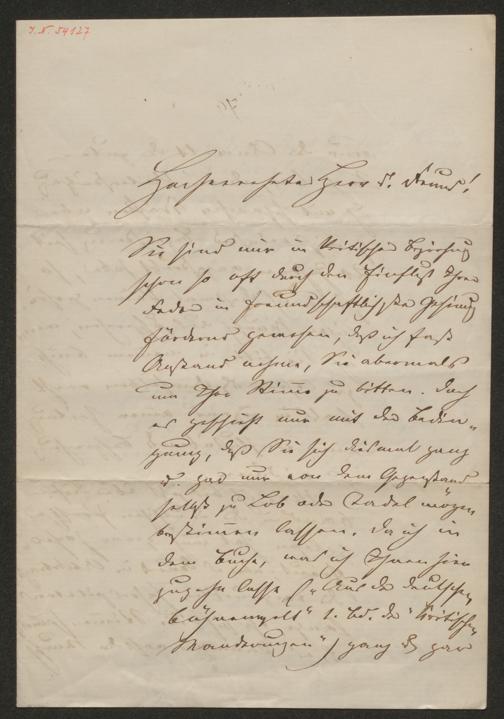 J. N. 54127
Hochverehrter Herr u. Freund!
Sie sind mir in kritischer Beziehung
schon so oft durch den Einfluß Ihrer
Feder in freundschaftlichster Gesinnung
fördernd gewesen, daß ich fast
Anstand nehme, Sie abermals
um Ihre Stimme zu bitten. Doch
es geschieht nur mit der Bedin-
gung, daß Sie sich diesmal ganz
u. gar nur von dem Gegenstand
selbst zu Lob oder Tadel mögen
bestimmen lassen. Da ich in
dem Buche, was ich Ihnen hier
zugehn lasse („Aus der deutschen
Bühnenwelt" 1. Bd. der „Kritischen
Wanderungen") ganz u. gar